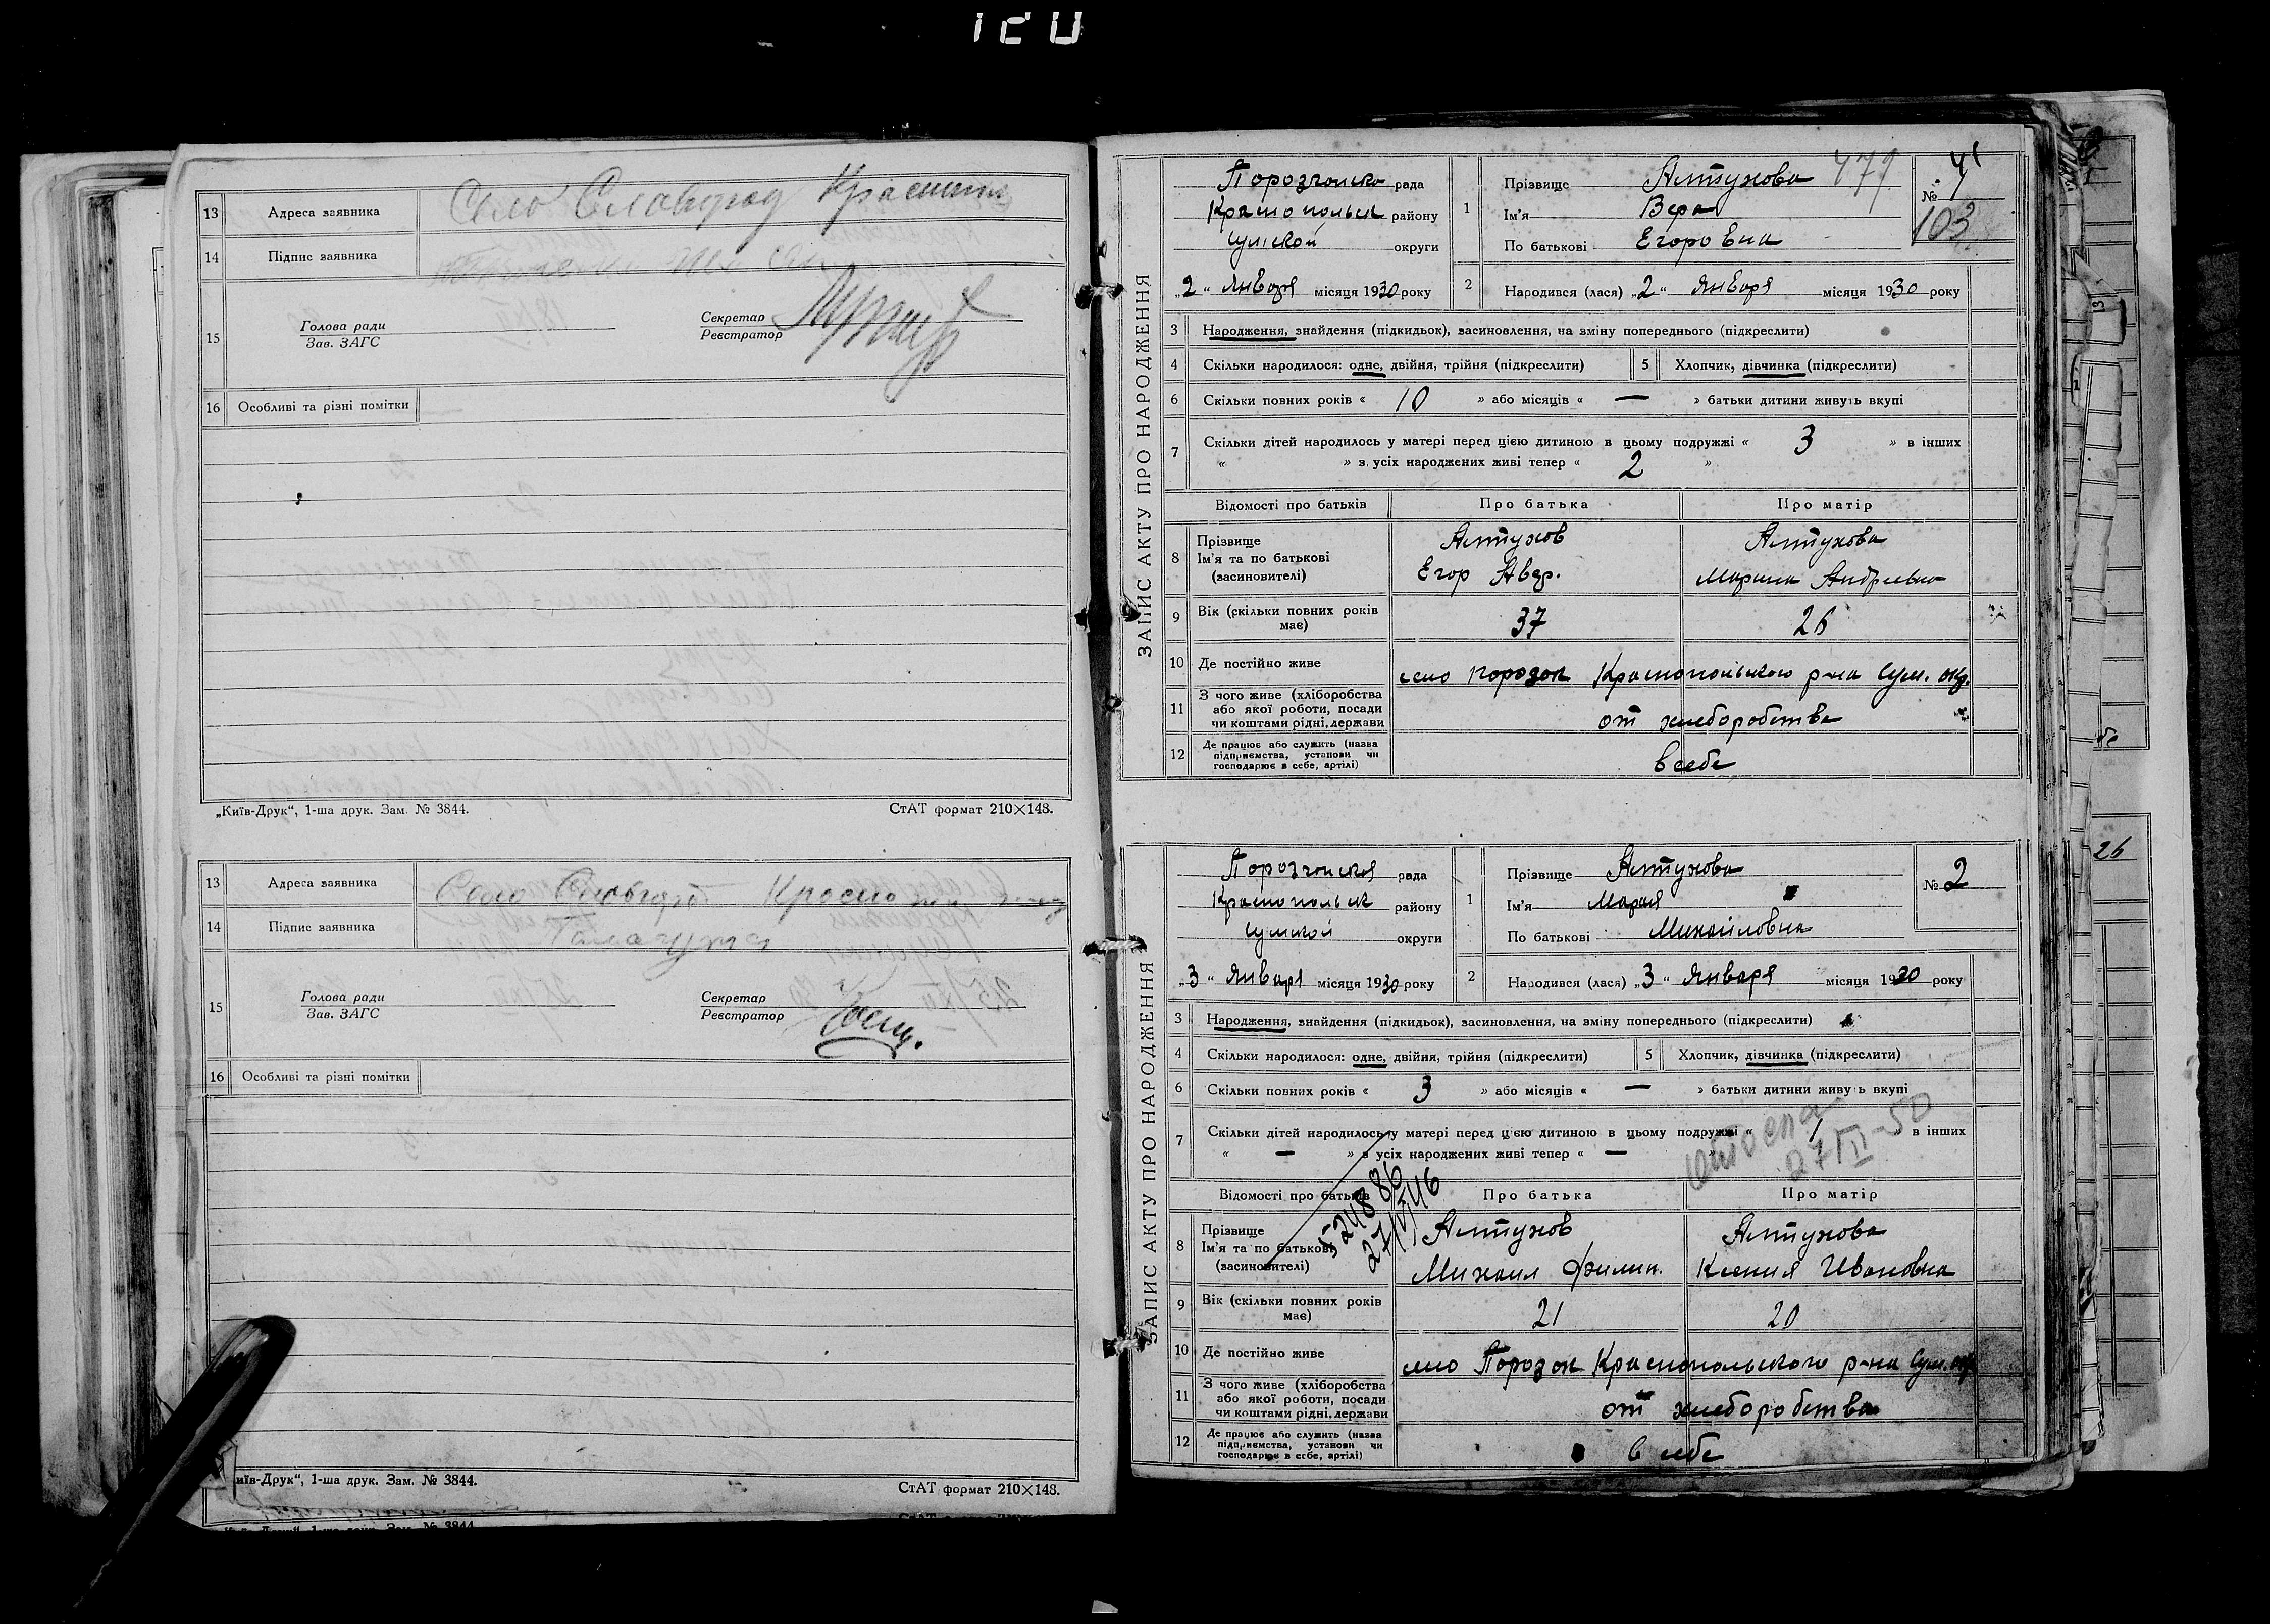 120
13 Адреса заявника Село Славгород Краснопіл
14 Підпис заявника
15 Голова ради
Зав. ЗАГС
Секретар
Реєстратор
16 Особливі та різні помітки
„Київ-Друк“, 1-ша друк. Зам. № 3844. СтАТ формат 210×148.
13 Адреса заявника Село Славгород Красно
14 Підпис заявника
15 Голова ради
Зав. ЗАГС
Секретар
Реєстратор
16 Особливі та різні помітки
иїв-Друк“, 1-ша друк. Зам. № 3844. СтАТ формат 210×148.
ЗАПИС АКТУ ПРО НАРОДЖЕННЯ
Порозчанско рада
Краснопольск району
Сумской округи
„2“ Января місяця 1930 року
1 Прізвище Алтухова 479
Ім'я Вера
По батькові Егоровна
№ 1
41
103
2 Народився (лася) „2“ Января місяця 1930 року
3 Народження, знайдення (підкидьок), засиновлення, на зміну попереднього (підкреслити)
4 Скільки народилося: одне, двійня, трійня (підкреслити) 5 Хлопчик, дівчинка (підкреслити)
6 Скільки повних років « 10 » або місяців « — » батьки дитини живуть вкупі
7 Скільки дітей народилось у матері перед цією дитиною в цьому подружжі « 3 » в інших
« » з усіх народжених живі тепер « 2 »
Відомості про батьків Про батька Про матір
8 Прізвище Алтухов Алтухова
Ім'я та по батькові Егор Авер. Марина Андреевна
(засиновителі)
9 Вік (скільки повних років має) 37 26
10 Де постійно живе село Порозок Краснопольского р-на Сум. окр.
11 З чого живе (хліборобства
або якої роботи, посади
чи коштами рідні, держави от хлеборобства
12 Де працює або служить (назва
підприємства, установи чи
господарює в себе, артілі) в себе
ЗАПИС АКТУ ПРО НАРОДЖЕННЯ
Порозчанская рада
Краснопольск району
Сумской округи
„3“ Января місяця 1930 року
1 Прізвище Алтухова
Ім'я Мария
По батькові Михайловна
№ 2
2 Народився (лася) „3“ Января місяця 1930 року
3 Народження, знайдення (підкидьок), засиновлення, на зміну попереднього (підкреслити)
4 Скільки народилося: одне, двійня, трійня (підкреслити) 5 Хлопчик, дівчинка (підкреслити)
6 Скільки повних років « 3 » або місяців « — » батьки дитини живуть вкупі
7 Скільки дітей народилось у матері перед цією дитиною в цьому подружжі « 1 » в інших
« — » з усіх народжених живі тепер « — »
Відомості про батьків Про батька Про матір
8 Прізвище Алтухов Алтухова
Ім'я та по батькові Михаил Филип. Ксения Ивановна
(засиновителі)
9 Вік (скільки повних років має) 21 20
10 Де постійно живе село Порозок Краснопольского р-на Сум. окр
11 З чого живе (хліборобства
або якої роботи, посади
чи коштами рідні, держави от хлеборобства
12 Де працює або служить (назва
підприємства, установи чи
господарює в себе, артілі) в себе
26